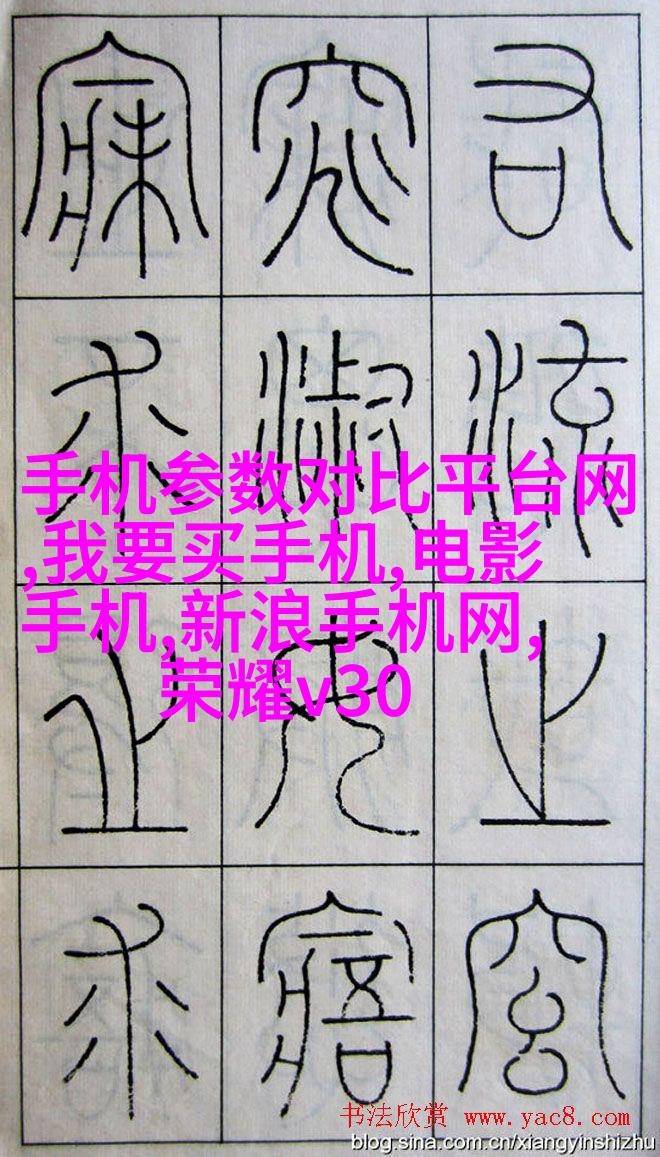 右流之窈
窕淑女寤
寐求之求
手机参数对比平台网
,我要买手机,电影
手机,新浪手机网,
荣耀v30
书法欣赏 www.yac8.com
blog.sina.com.cn/xiangyinshizhu